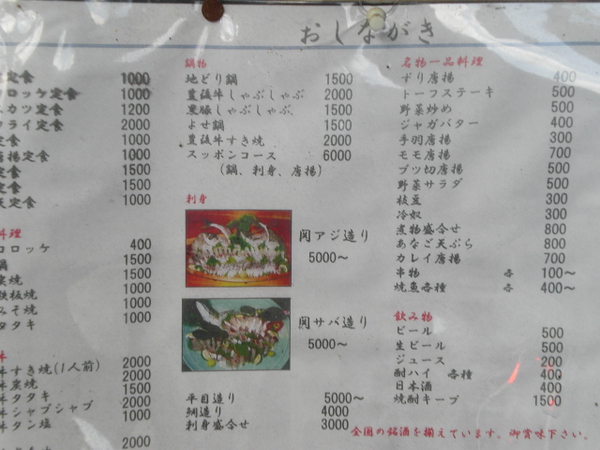 おしながき
定食 1000
ロッケ定食 1000
カツ定食 1200
フライ定食 2000
定食 1000
唐揚定食 1000
定食 1500
定食 1500
天定食 1000
料理
コロッケ 400
鍋 1500
炭焼 1500
鉄板焼 1000
みそ焼 1000
タタキ 1000
牛すき焼(1人前) 2000
牛炭焼 2000
牛タタキ 1500
牛シャブシャブ 2000
牛タン塩 1000
2000
鍋物
地どり鍋 1500
豊後牛しゃぶしゃぶ 2000
黒豚しゃぶしゃぶ 1500
よせ鍋 1500
豊後牛すき焼 2000
スッポンコース 6000
(鍋、刺身、唐揚)
刺身
関アジ造り
5000〜
関サバ造り
5000〜
平目造り 5000〜
鯛造り 4000
刺身盛合せ 3000
名物一品料理
ずり唐揚 400
トーフステーキ 500
野菜炒め 500
ジャガバター 400
手羽唐揚 300
モモ唐揚 700
ブツ切唐揚 500
野菜サラダ 500
枝豆 300
冷奴 300
煮物盛合せ 800
あなご天ぷら 800
カレイ唐揚 700
串物 各 100〜
焼魚各種 各 400〜
飲み物
ビール 500
生ビール 500
ジュース 200
酎ハイ 各種 400
日本酒 400
焼酎キープ 1500
全国の銘酒を揃えています。御賞味下さい。